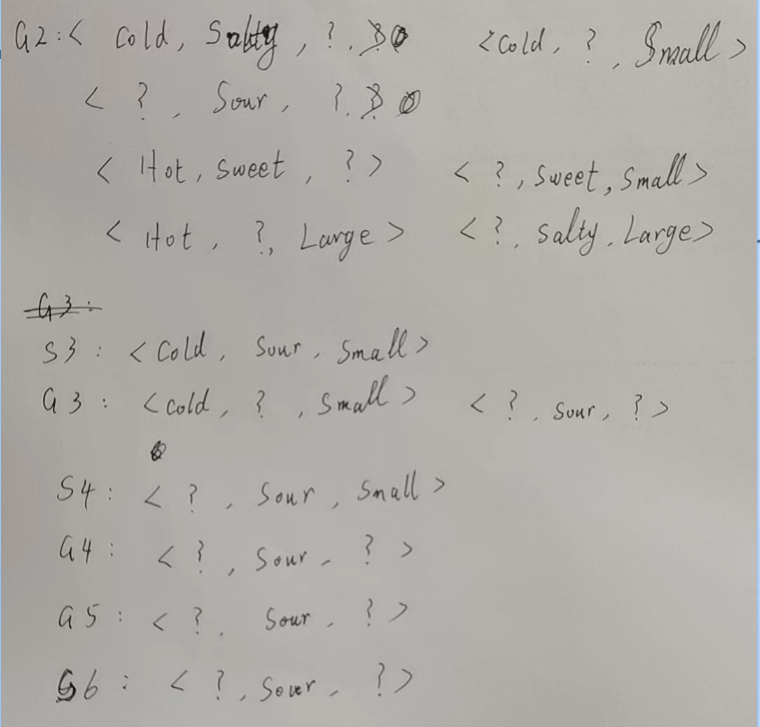 G2: < Cold, Salty, ?, < Cold, ?, Small >
< ?, Sour, ?,
< Hot, Sweet, ? > < ?, Sweet, Small >
< Hot, ?, Large > < ?, Salty, Large >
G3:
S3: < Cold, Sour, Small >
G3: < Cold, ?, Small > < ?, Sour, ? >
S4: < ?, Sour, Small >
G4: < ?, Sour, ? >
G5: < ?, Sour, ? >
G6: < ?, Sour, ? >